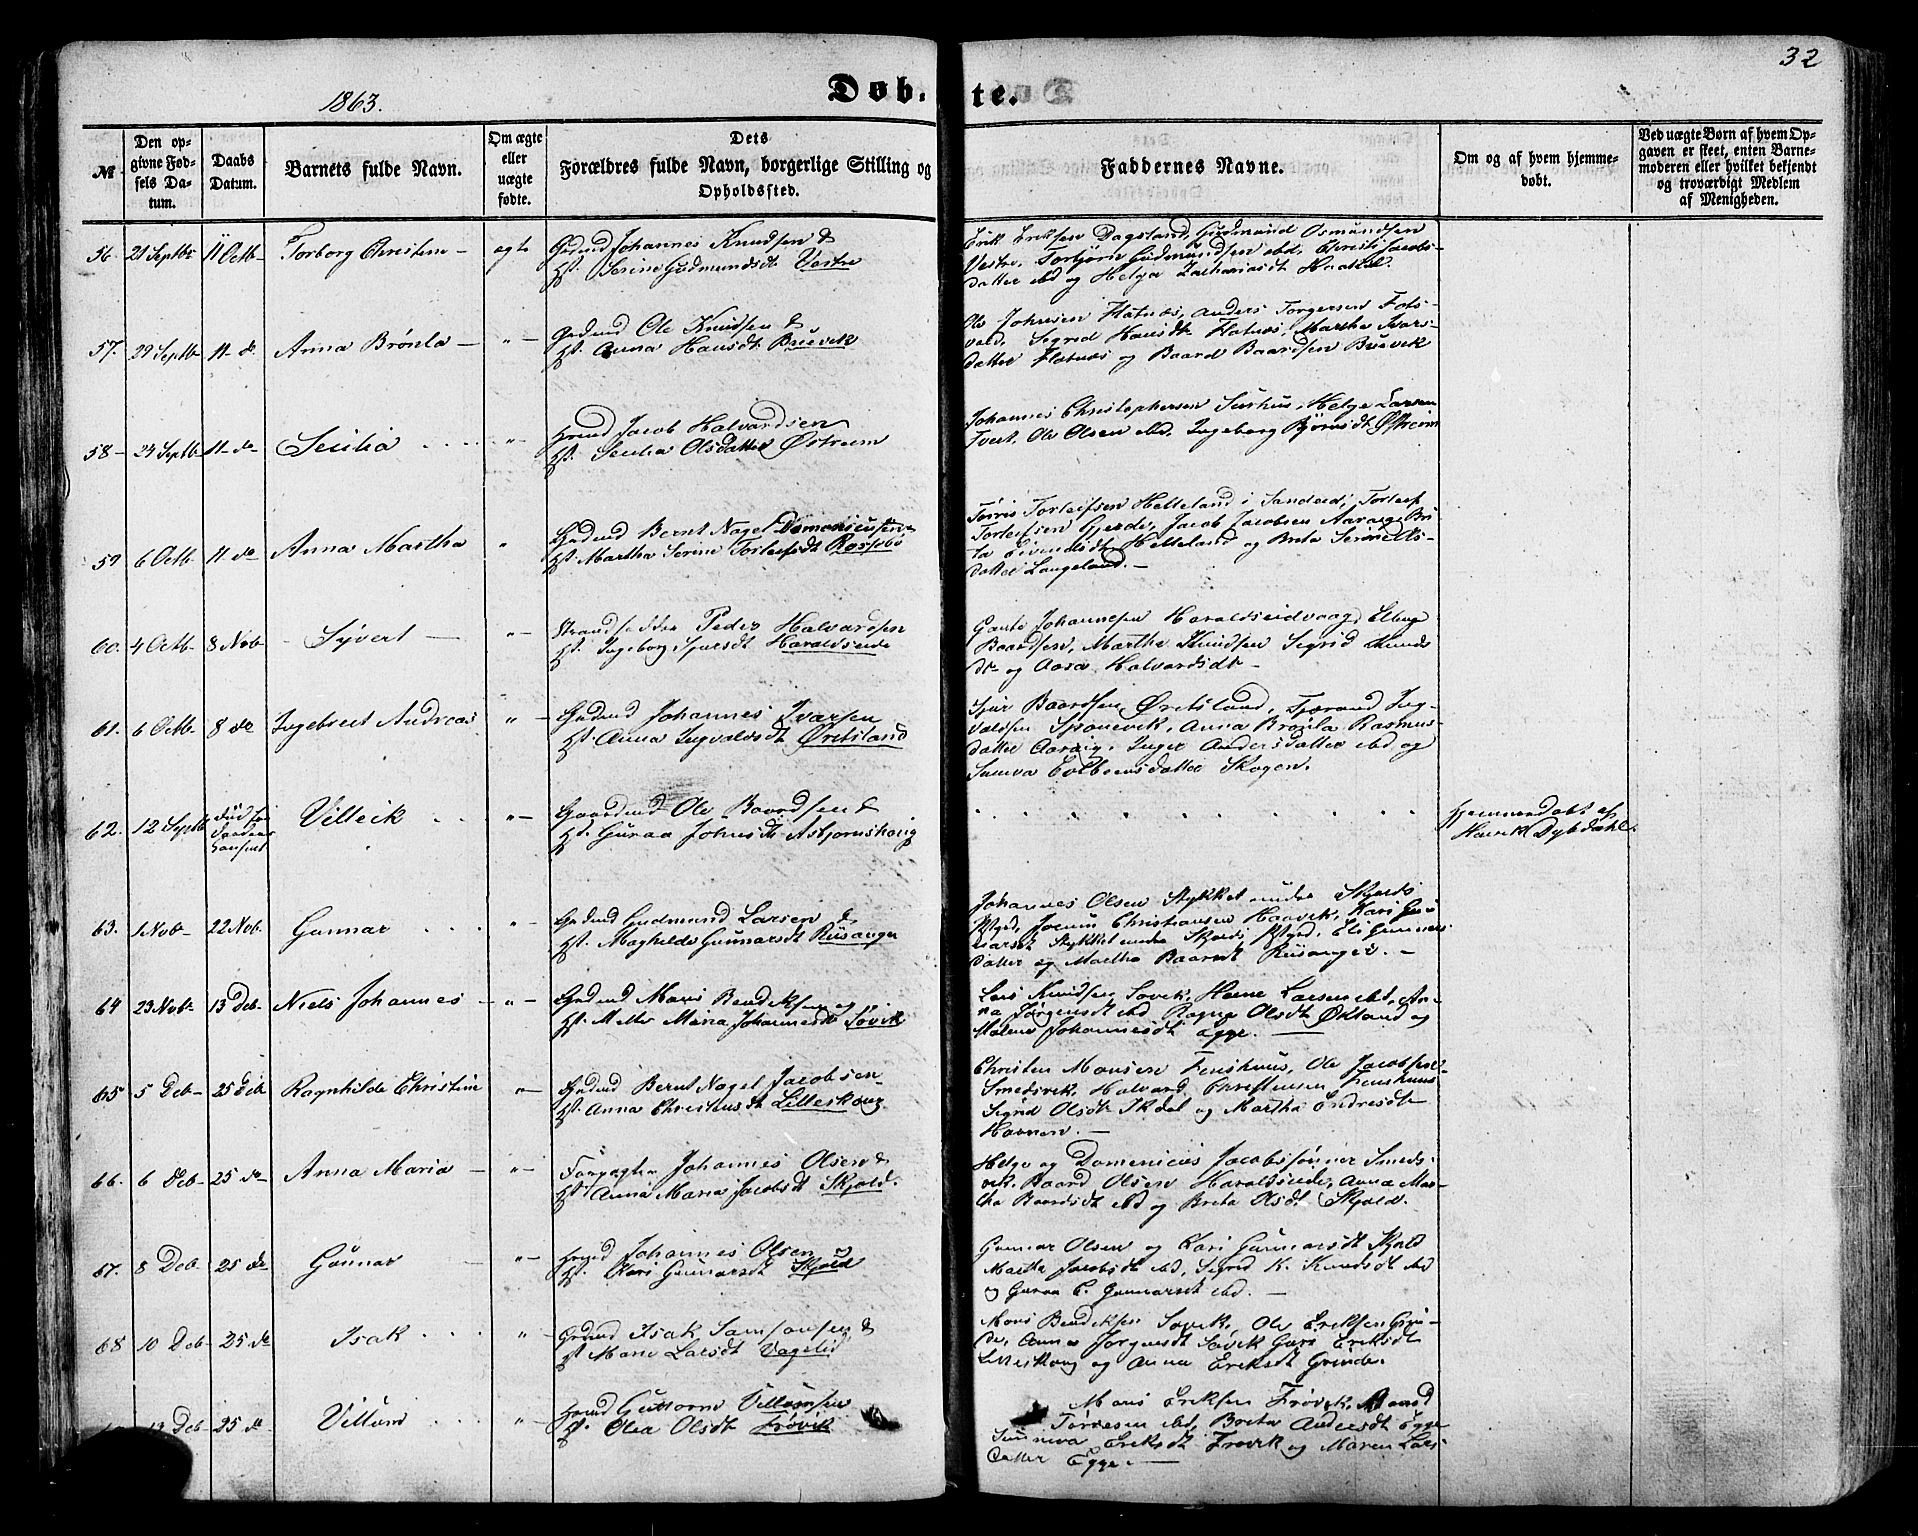 32
1863.
Døb.te.
№
Den opgivne Fødsels Datum.
Daabs Datum.
Barnets fulde Navn.
Om ægte eller uægte fødte.
Dets Forældres fulde Navn, borgerlige Stilling og Opholdssted.
Faddernes Navne.
Om og af hvem hjemmedøbt.
Ved uægte Børn af hvem Opgaven er skeet, enten Barnemoderen eller hvilket bekjendt og troværdigt Medlem af Menigheden.
56. 21 Septbr 11 Octb Torborg Christine - ægte
Gudmd Johannes Knudsen &
H. Serine Gudmundsdt Vestre
Erik Eriksen Dagsland, Gudmund Osmundsen
Vestre, Torbjørn Gudmundsen ibd, Christi Jacobs-
datter ibd og Helga Zachariasdt
57. 29 Septb 11 de Anna Brønla - " -
Grdmd Ole Knudsen &
H. Anna Hansdt Buevik
Ole Johnsen Flatnæs, Anders Torgersen
Sigrid Hansdt Flatnæs, Martha Ivars-
datter Flatnæs og Baard Baardsen Buevik
58 - 24 Septb 11 de Secilia " -
Hmd Jacob Halvardsen
H. Secilia Olsdatter Østreim
Johannes Christophersen Helge Larsen
Tvert, Ole Olsen ibd, Ingeborg Bjørnsdt Østreim
59 6 Octb 11 de Anna Martha "
Grdmd Bernt Nagel Domenicussen
H. Martha Serine Torleifsdt Rossebø
Tørris Torleifsen Helleland i Sandeid, Torleif
Torleifsen Gjerde, Jacob Jacobsen Aaraig, Bri-
ta Eivindsdt Helleland og Brita
datter Langeland. -
60. 4 Octb 8 Nob - Syvert - " -
Strandsidder Peder Halvardsen
H. Ingeborg Sjursdt Haraldseide
Gaute Johannesen Haraldseidvaag,
Baardsen, Martha Knudsen Sigrid
dt og Aasa Halvardsdt -
61. 6 Octb 8 de Ingebret Andreas " -
Grdmd Johannes Ivarsen
H. Anna Ingvaldsdt Øretsland
Sjur Baardsen Øretsland, Tjærand Ing-
valdsen Anna Brønla Rasmus-
datter Aaraig, Inger Andersdatter ibd og
datter Skogen.
62. 12 Septb Villeik " -
Gaardmd Ole Baardsen &
H. Guraa Johnsdt Asbjørnshaug
Hjemmedøbt af
Henrik Dybdahl.
63. 1 Nob 22 Nob. Gunnar " -
Grdmd Gudmund Larsen &
H. Maghilde Gunnarsdt Riisanger
Johannes Olsen Stykket under Skjolds
Pgrd, Joenn Christiansen Haavik, Kari Gun-
narsdt Stykket under Skjolds Pgrd, Eli Gunnars-
datter og Martha Baardsdt Riisanger. -
64 23 Nob 13 Deb Niels Johannes - " -
Grdmd Mons Bendiksen og
H. Mette Maria Johannesdt Søvik
Lars Knudsen Søvik, Larsen ibd, An-
na Jørgensdt ibd Ragna Olsdt Økland og
Malene Johannesdt Egge.
65 5 Deb 25 Deb Ragnhilde Christine " -
Grdmd Bernt Nagel Jacobsen
H. Anna Christensdt Litleskoug
Christen Monsen Fenshuus, Ole Jacobsen
Smedsvik, Halvard Christensen Fenshuus
Sigrid Olsdt og Martha Endresdt
66. 6 Deb 25 de Anna Maria - " -
Forpagter Johannes Olsen &
H. Anna Maria Jacobsdt Skjold.
Helge og Domenicus Jacobssønner Smeds-
vik. Baard Olsen Haraldseide, Anna Mar-
tha Baardsdt ibd og Brita Olsdt Skjold.
67. 8 Deb 25 de Gunnar " -
Hmd Johannes Olsen og
H. Kari Gunnarsdt Skjold
Gunnar Olsen og Kari Gunnarsdt Skjold
Martha Jacobsdt ibd, Sigrid K. Knudsdt ibd
og Guraa E. Gunnarsdt ibd. -
68 10 Deb 25 de Isak " -
Grdmd Isak Samsonsen &
H. Marie Larsdt Vagelid
Mons Bendiksen Søvik, Ole Eriksen Grin-
de, Anna Jørgensdt Søvik Guri Eriksdt
Litleskoug og Anna Eriksdt Grinde.
13 Deb 25 de Villum " -
Hmd Guttorm Villumsen
H. Olea Olsdt Frøvik
Mons Eriksen Frøvik,
Tørresen ibd, Brita Andersdt Egge
Sunniva Eriksdt Frøvik og Maren Lars-
datter Egge. -